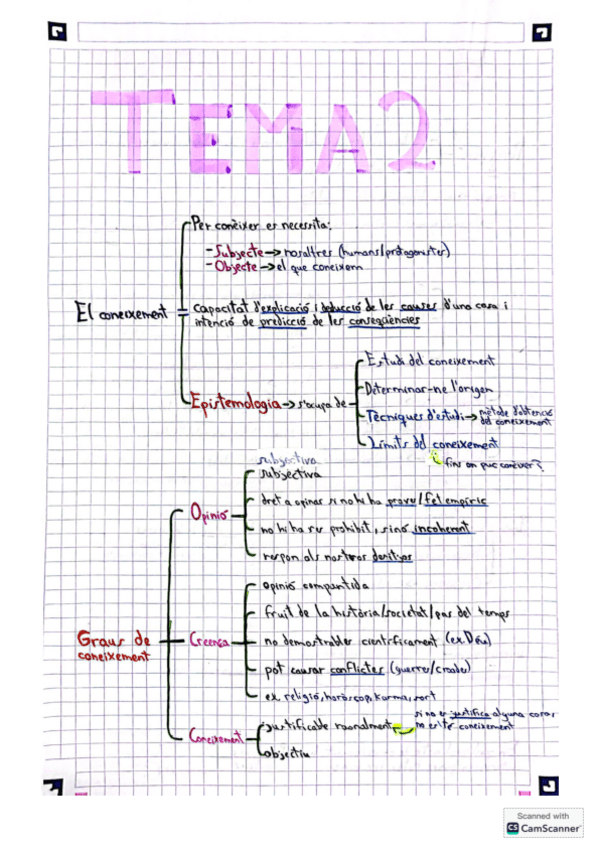 TEMA 2
Per conèixer es necessita:
- Subjecte → nosaltres (humans/protagonistes)
- Objecte → el que coneixem
El coneixement
capacitat d'explicació i deducció de les causes d'una cosa i
intenció de predicció de les conseqüències
Epistemologia → s'ocupa de
Estudi del coneixement
Determinar-ne l'origen
Tècniques d'estudi → mètode d'obtenció
del coneixement
Límits del coneixement
fins on puc conèixer?
subjectiva
Opinió
subjectiva
dret a opinar si no hi ha prova/fet empíric
no hi ha res prohibit, sinó incoherent
respon als nostres desitjos
Graus de
coneixement
Creença
opinió compartida
fruit de la història/societat/pas del temps
no demostrables científicament (ex. Déu)
pot causar conflictes (guerres/)
ex religió, horòscop, Karma, sort
Coneixement
justificable raonalment
si no es justifica alguna cosa,
no es té coneixement
objectiu
Scanned with
CS CamScanner